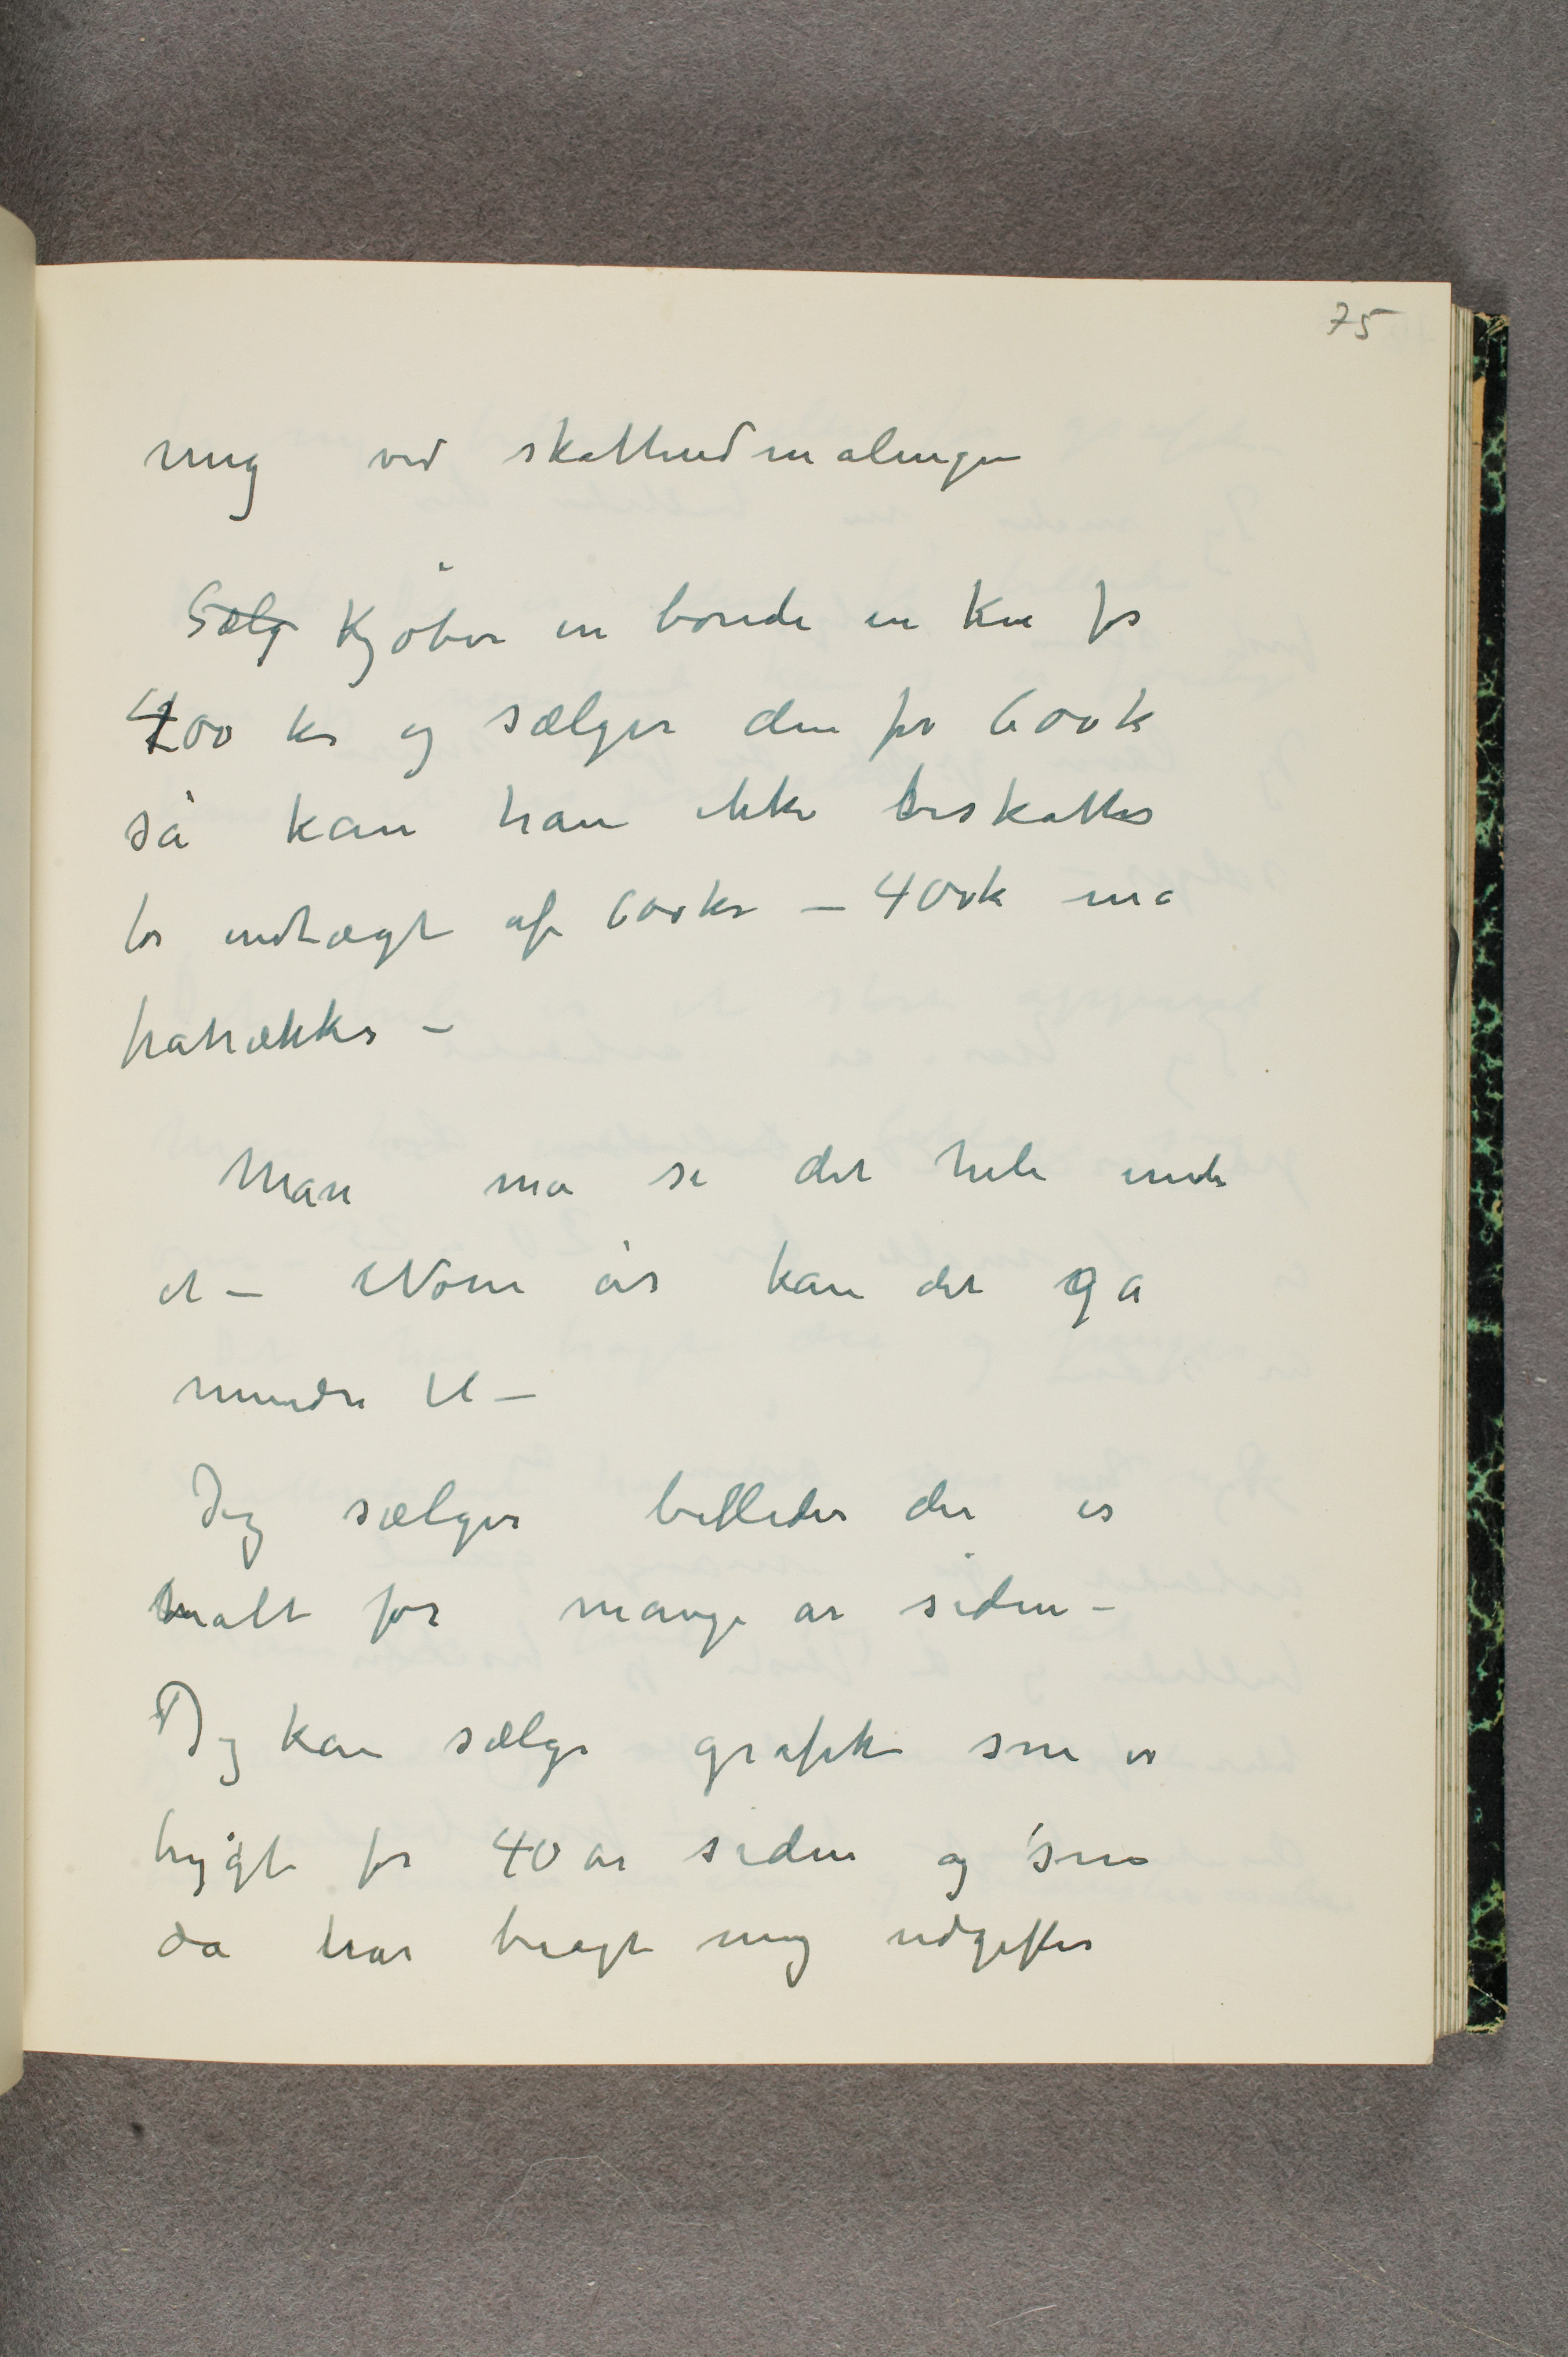 75
mig ved skatteudmålingen
Sælg Kjøber en bonde en Ku for
400 kr og sælger den for 600k
så kan han ikke beskattes
for indtægt af 600kr – 400k må
fratrækkes –
Man må se det hele under
et – Nom år kan det gå
mindre til –
Jeg sælger billeder der er
malt for mange år siden –
Jeg kan sælge grafik som er
trygt for 40 år siden og som
da har bragt mig udgifter